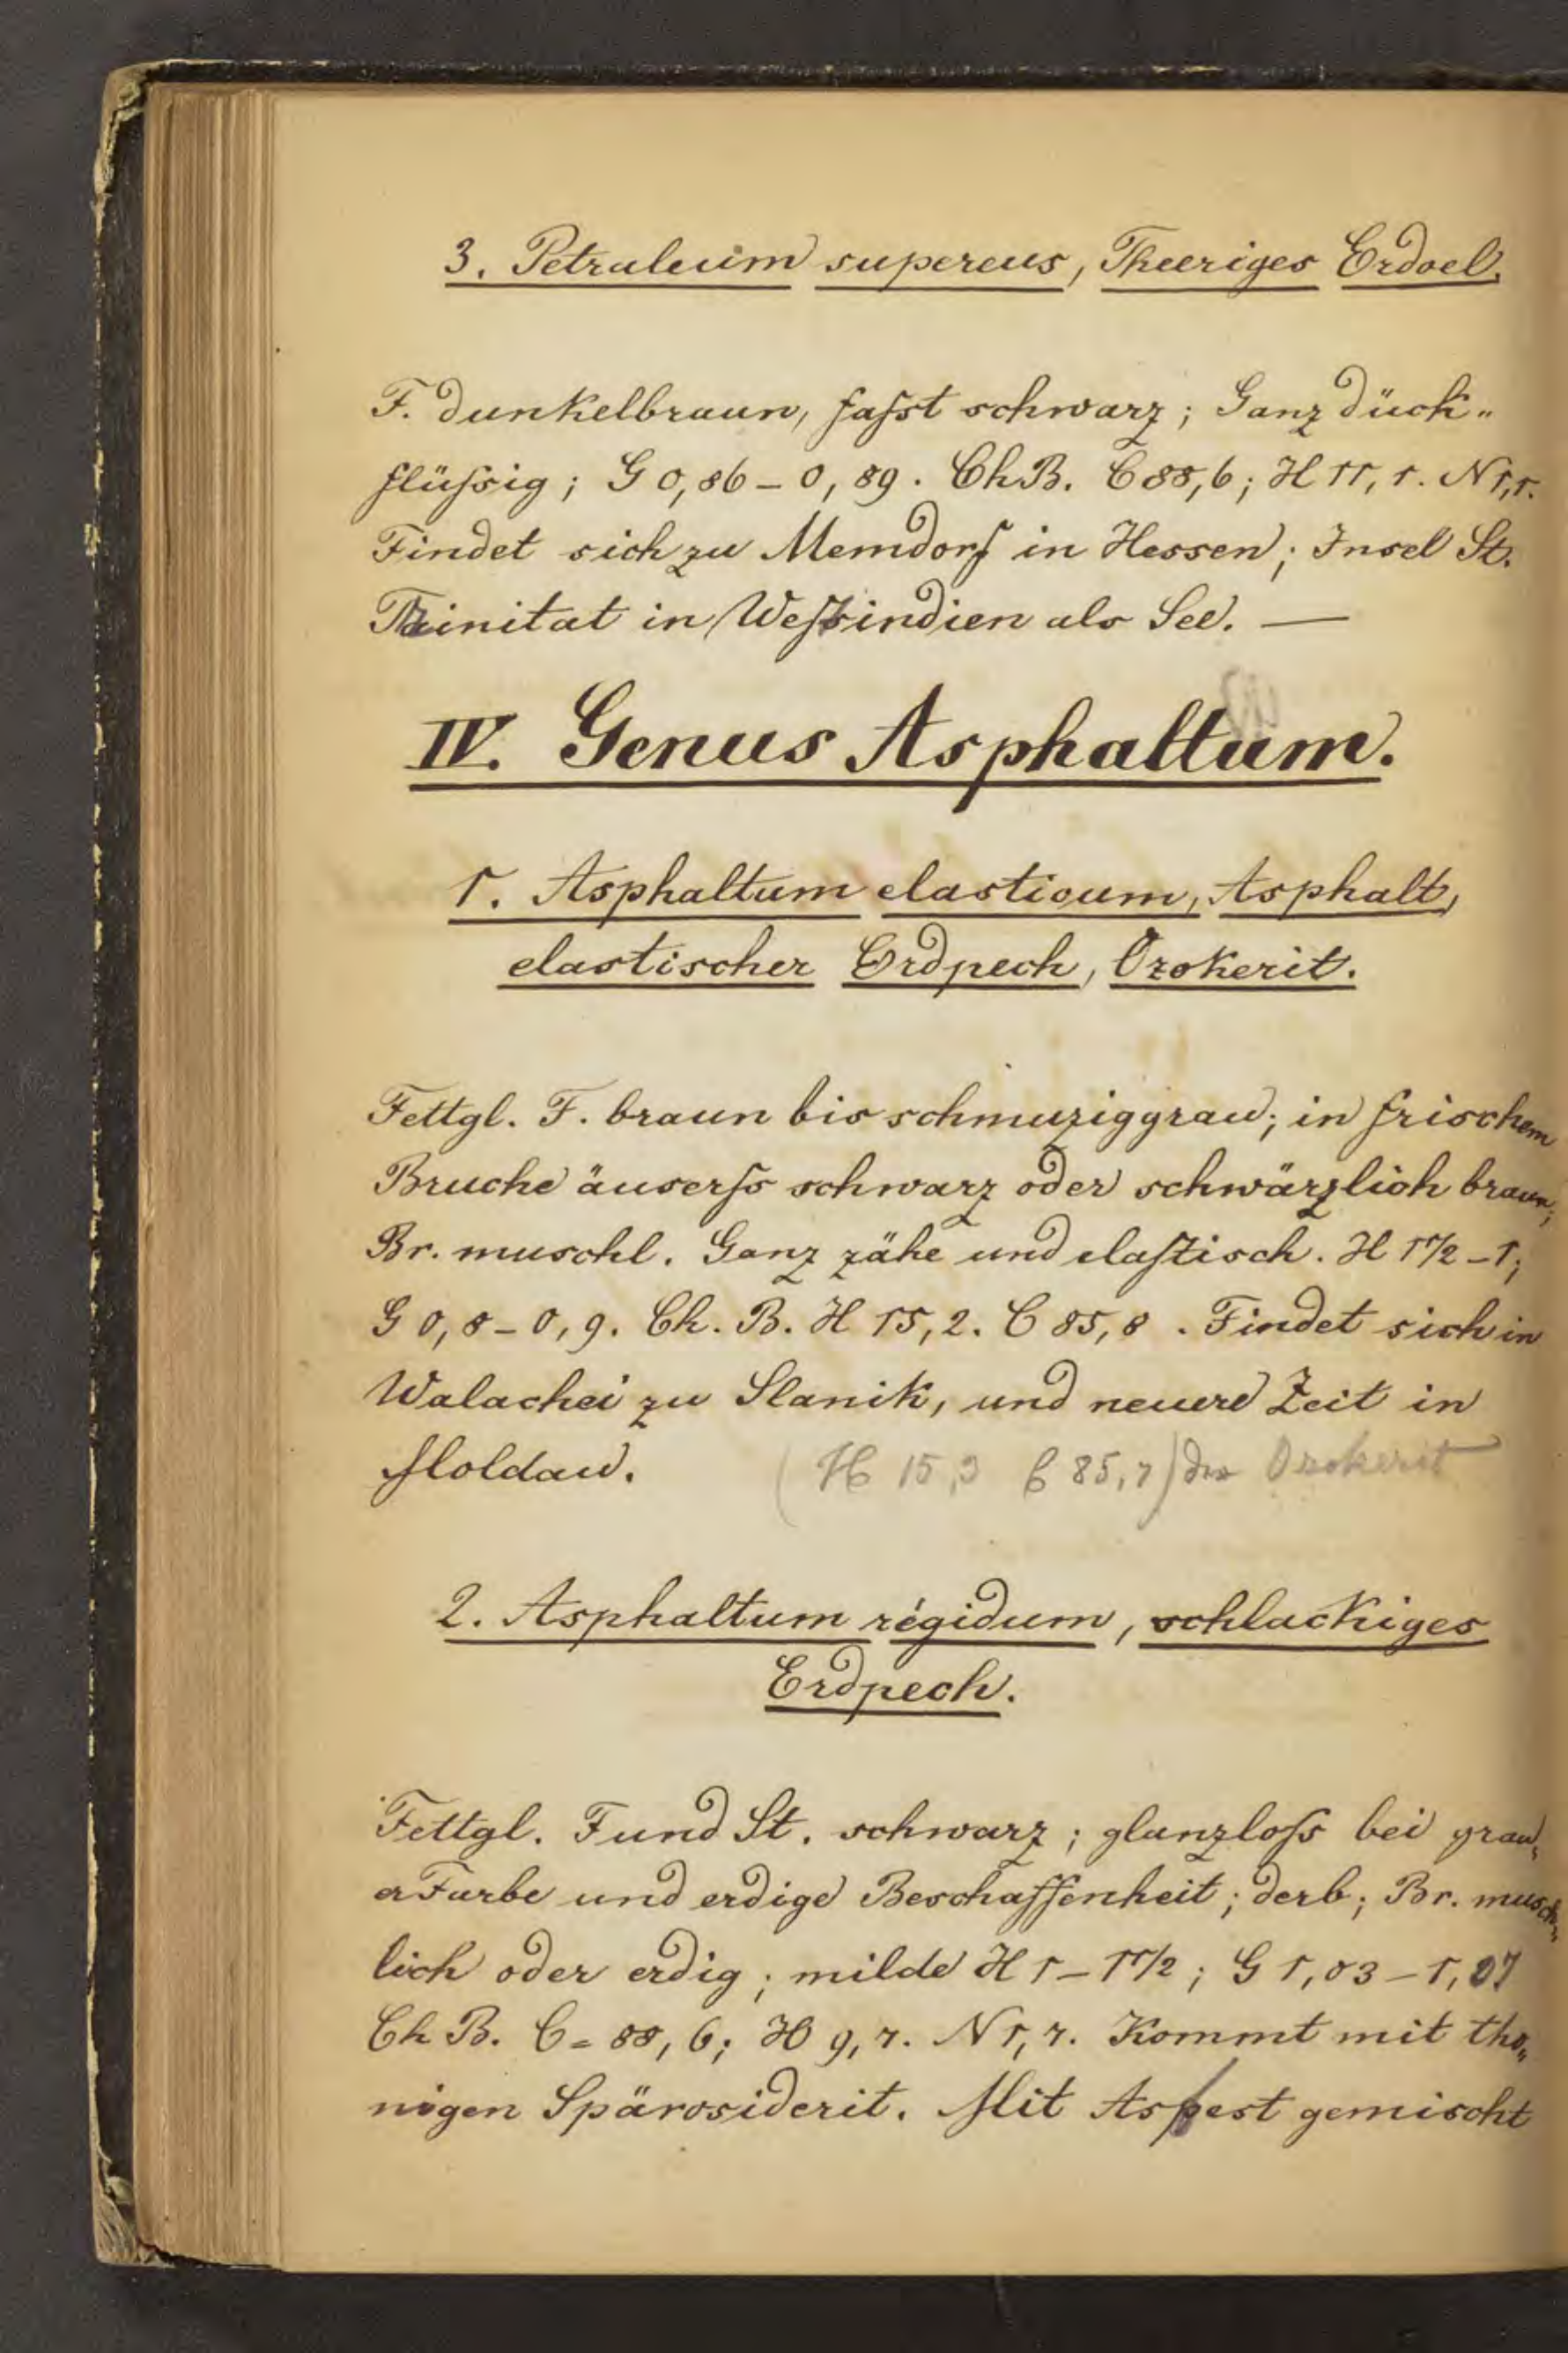 3. Petraleum supereus, Theeriges Erdoel.
F. dunkelbraun, faſst schwarz; Ganz dück„
flüſsig; G 0,86–0,89. Ch.B. C 88,6; H 11,1. N 1,1.
Findet sich zu Memdorf in Hessen; Insel St.
Trinitat in Weſtindien als See. —
IV. Genus Asphaltum.
1. Asphaltum elasticum, Asphalt,
elastischer Erdpech, Ozokerit.
Fettgl. F. braun bis schmuziggrau; in frischem
Bruche äuserſs schwarz oder schwärzlich braun;
Br. muschl. Ganz zähe und elaſtisch. H 1 1/2–1;
G 0,8–0,9. Ch. B. H 15,2. C 85,8. Findet sich in
Walachei zu Slanik, und neuere Zeit in
Moldau. (H 15,3 C 85,7) Ozokerit
2. Asphaltum régidum, schlackiges
Erdpech.
Fettgl. F und St. schwarz; glanzloſs bei grau„
er Farbe und erdige Beschaffenheit; derb; Br. musch„
lich oder erdig; milde H 1–1 1/2; G 1,03–1,07
Ch B. C = 88,6; H 9,7. N 1,7. Kommt mit tho„
nigen Spärosiderit. Mit Asbest gemischt